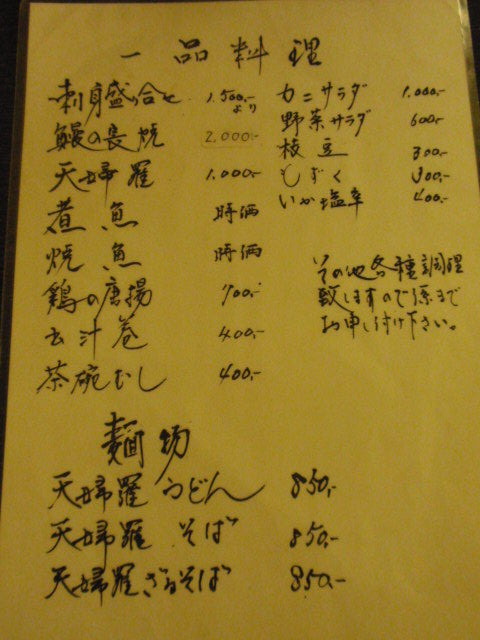 一品料理
刺身盛り合せ 1.500.-より
鰻の長焼 2.000.-
天婦羅 1.000.-
煮魚 時価
焼魚 時価
鶏の唐揚 700.-
出汁巻 400.-
茶碗むし 400.-
カニサラダ 1.000.-
野菜サラダ 600.-
枝豆 300.-
もずく 300.-
いか塩辛 400.-
その他各種調理
致しますので係まで
お申し付け下さい。
麺物
天婦羅うどん 850.-
天婦羅そば 850.-
天婦羅ざるそば 850.-